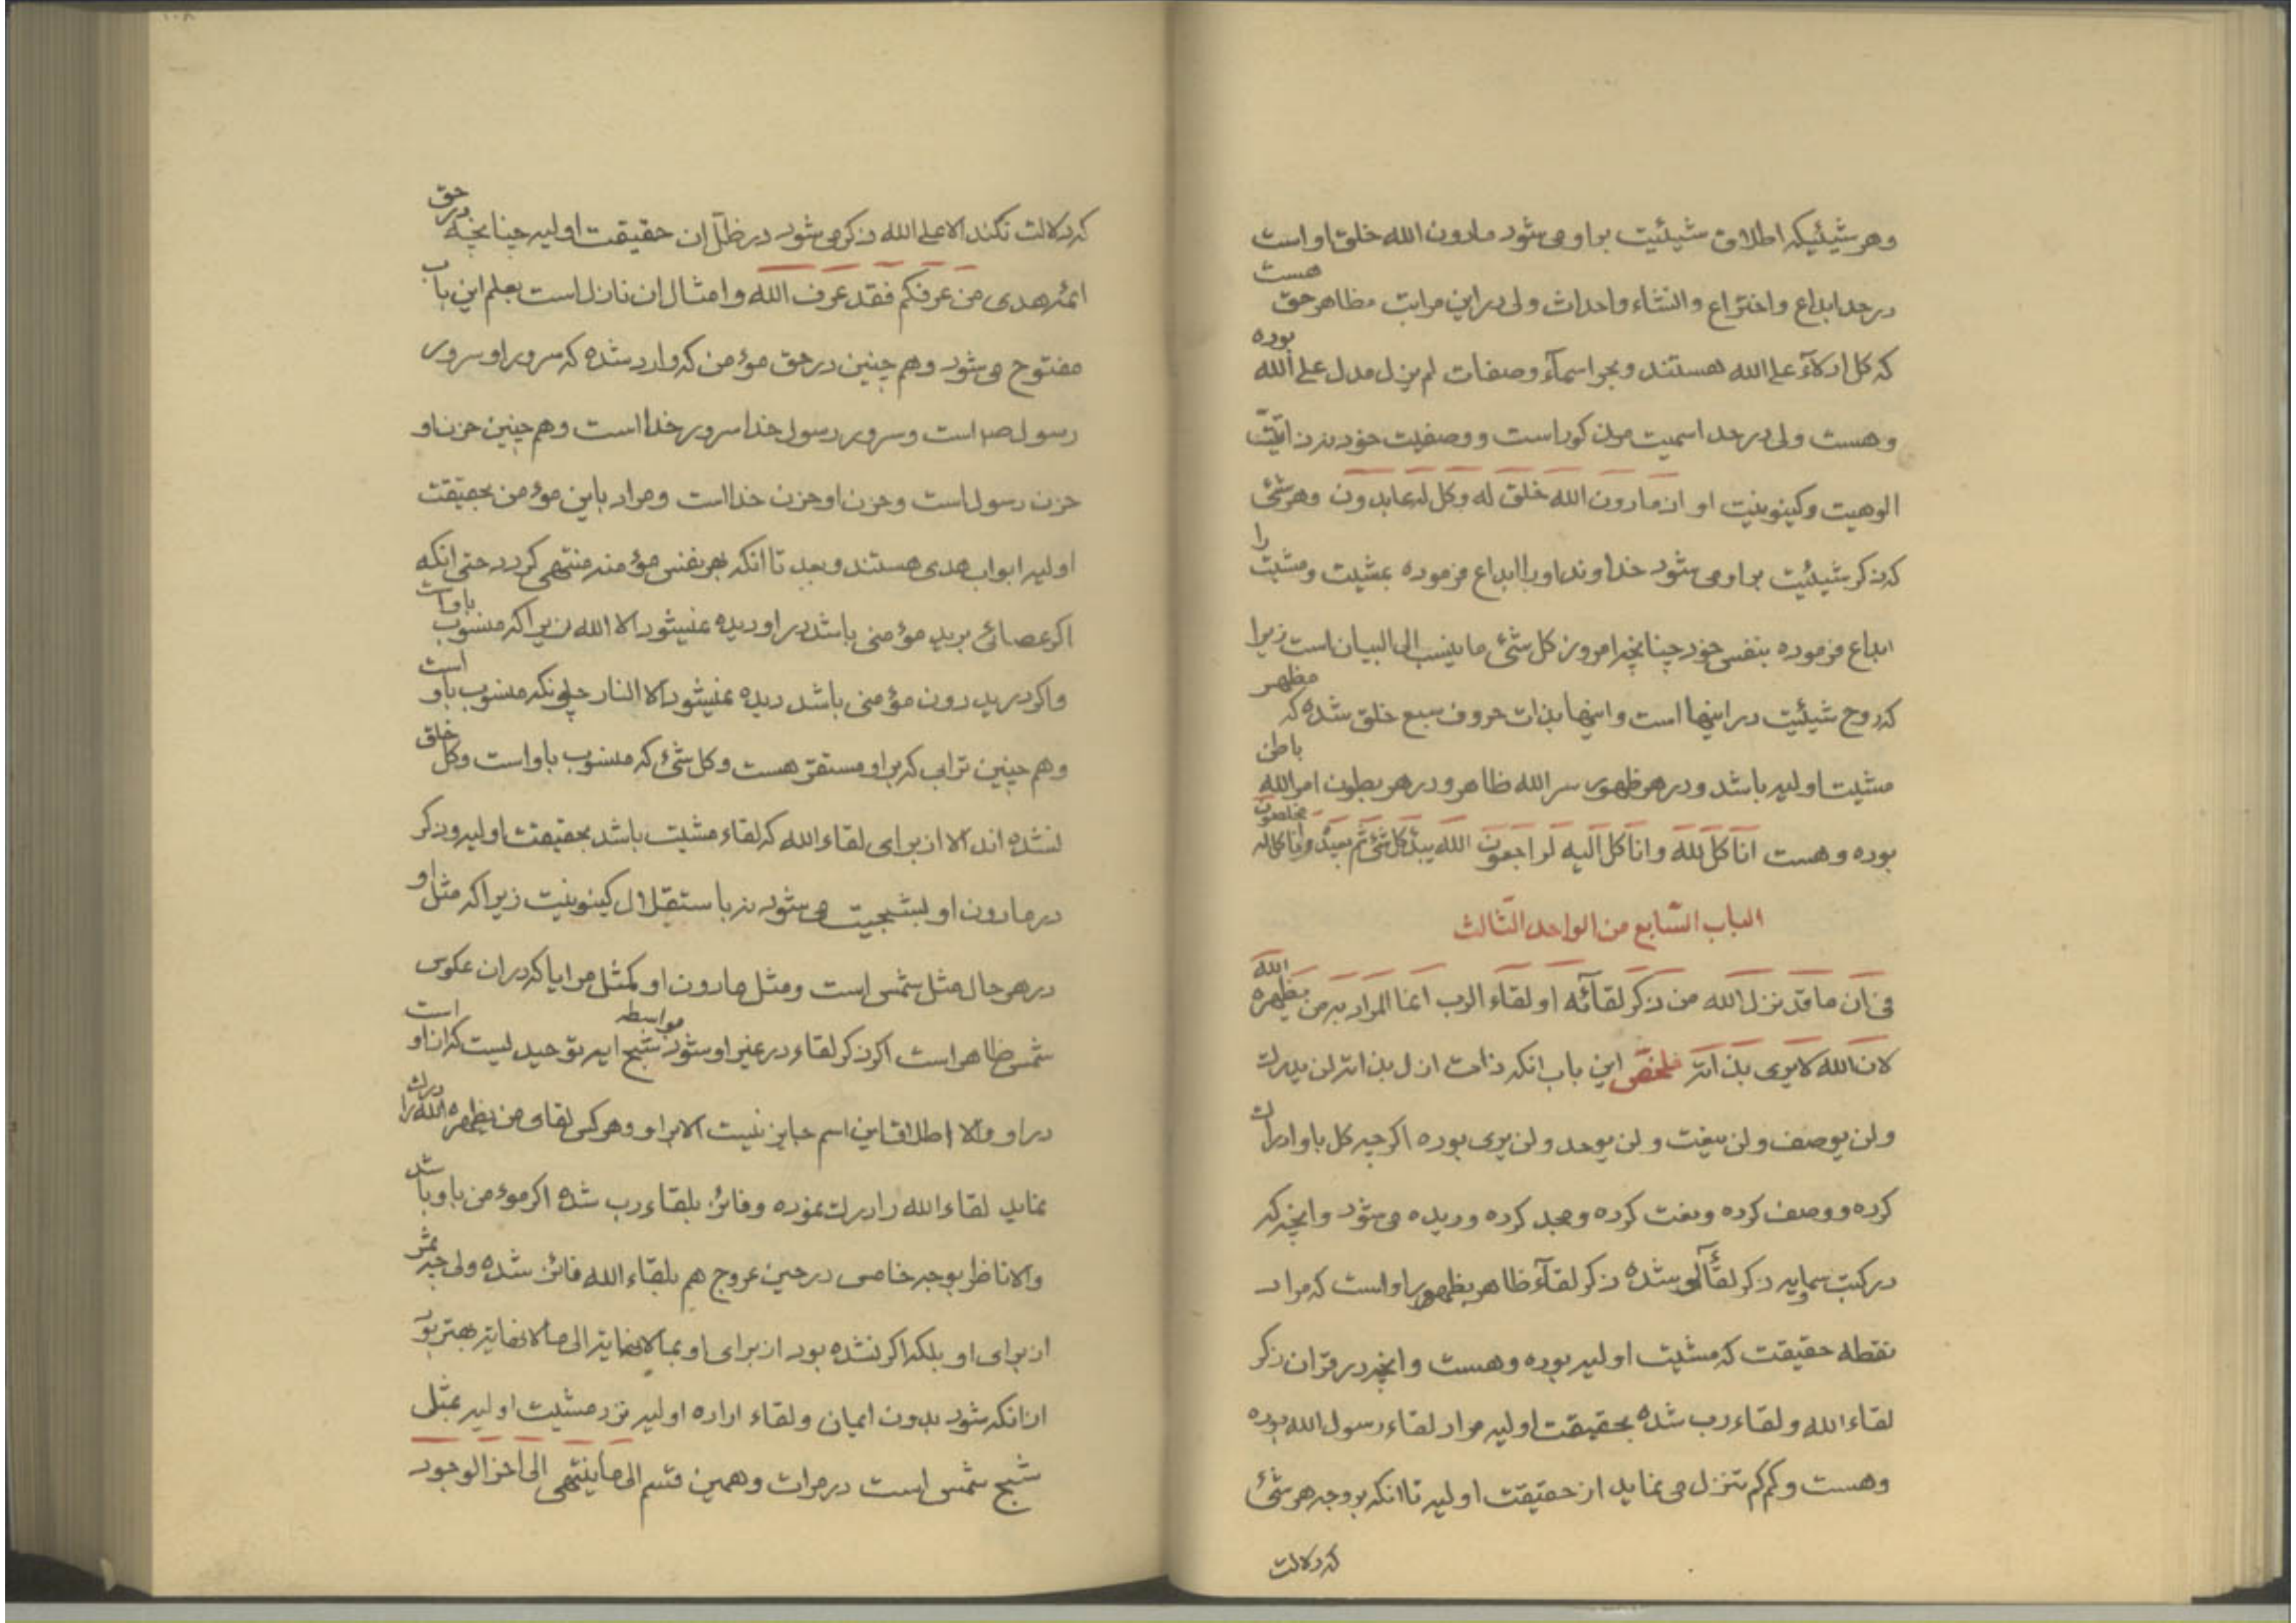 وهر شیئیکه اطلاق شیئیت براو می شود مادون الله خلق او است
در حد ابداع واختراع وانشاء واحداث ولی در این مراتب مظاهر حق هست
که کل ادلآء علی الله هستند وبحر اسمآء وصفات لم یزل مدل علی الله بوده
وهست ولی در حد اسمیت مذکور است ووصفیت خود نه ذاتیت
الوهیت وکینونیت او اذ مادون الله خلق له وکل له عابدون وهر شئ
که ذکر شیئیت براو می شود خداوند اورا ابداع فرموده بمشیت ومشیت را
ابداع فرموده بنفس خود چنانچه امروز کل شئ ما ینسب الی البیان است زیرا
که روح شیئیت در اینها است واینها بذات حروف سبع خلق شده که مظهر
مشیت اولیه باشد ودر هر ظهوری سر الله ظاهر ودر هر بطون امر الله باطن
بوده وهست انا کل لله وانا کل الیه لراجعون الله یبدء کل شئ ثم یعیده وانا کل له مخلصون
الباب السّابع من الواحد الثّالث
فی ان ما قد نزل الله من ذکر لقائه او لقاء الرب انما المراد به من یظهره الله
لان الله لا یری بذاته ملخص این باب انکه ذات ازل بذاته لن یدرک
ولن یوصف ولن ینعت ولن یوحد ولن یری بوده اگرچه کل باو ادراک
کرده ووصف کرده ونعت کرده ومجد کرده ودیده می شود وانچه که
در کتب سماویه ذکر لقآء او شده ذکر لقآء ظاهر بظهور او است که مراد
نقطه حقیقت که مشیت اولیه بوده وهست وانچه در قران ذکر
لقاء الله ولقاء رب شده بحقیقت اولیه مراد لقاء رسول الله بوده
وهست وکم کم تنزل می نماید از حقیقت اولیه تا انکه بر وجه هر شئ
که دلالت
که دلالت نکند الا علی الله ذکر می شود در ظل ان حقیقت اولیه چنانچه در حق
ائمه هدی من عرفکم فقد عرف الله وامثال ان نازل است بعلم این باب
مفتوح می شود وهم چنین در حق مؤمن که وارد شده که سرور او سرور
رسول ص است وسرور رسول خدا سرور خدا است وهم چنین حزن او
حزن رسول است وحزن او حزن خدا است ومراد باین مؤمن بحقیقت
اولیه ابواب هدی هستند وبعد تا انکه بهر نفس مؤمنه منتهی گردد حتی انکه
اگر عصائی برید مؤمنی باشد در او دیده نمیشود الا الله زیرا که منسوب باو است
واگر در ید دون مؤمنی باشد دیده نمیشود الا النار چونکه منسوب باو است
وهم چنین ترابی که بر او مستقر هست وکل شئ که منسوب باو است وکل خلق
نشده اند الا از برای لقاء الله که لقاء مشیت باشد بحقیقت اولیه وذکر
در مادون او بشبحیت می شود نه باستقلال کینونیت زیرا که مثل او
در هر حال مثل شمس است ومثل مادون او کمثل مرایا که در ان عکوس
شمس ظاهر است اگر ذکر لقاء در غیر او شود بواسطه شبح ایه توحید لیست که از او است
در او والا اطلاق این اسم جایز نیست الا براو وهر کس لقای من یظهره الله را درک
نماید لقاء الله را درک نموده وفائز بلقاء رب شده اگر مؤمن باو باشد
والا ناظر بوجه خاص در حین عروج هم بلقاء الله فائز شده ولی چه ثمر
از برای او بلکه اگر نشده بود از برای او بما لا نهایة الی ما لا نهایة بهتر بود
از انکه شود بدون ایمان ولقاء اراده اولیه نزد مشیت اولیه بمثل
شبح شمس است در مرات وهمین قسم الی ما ینتهی الی اخر الوجود